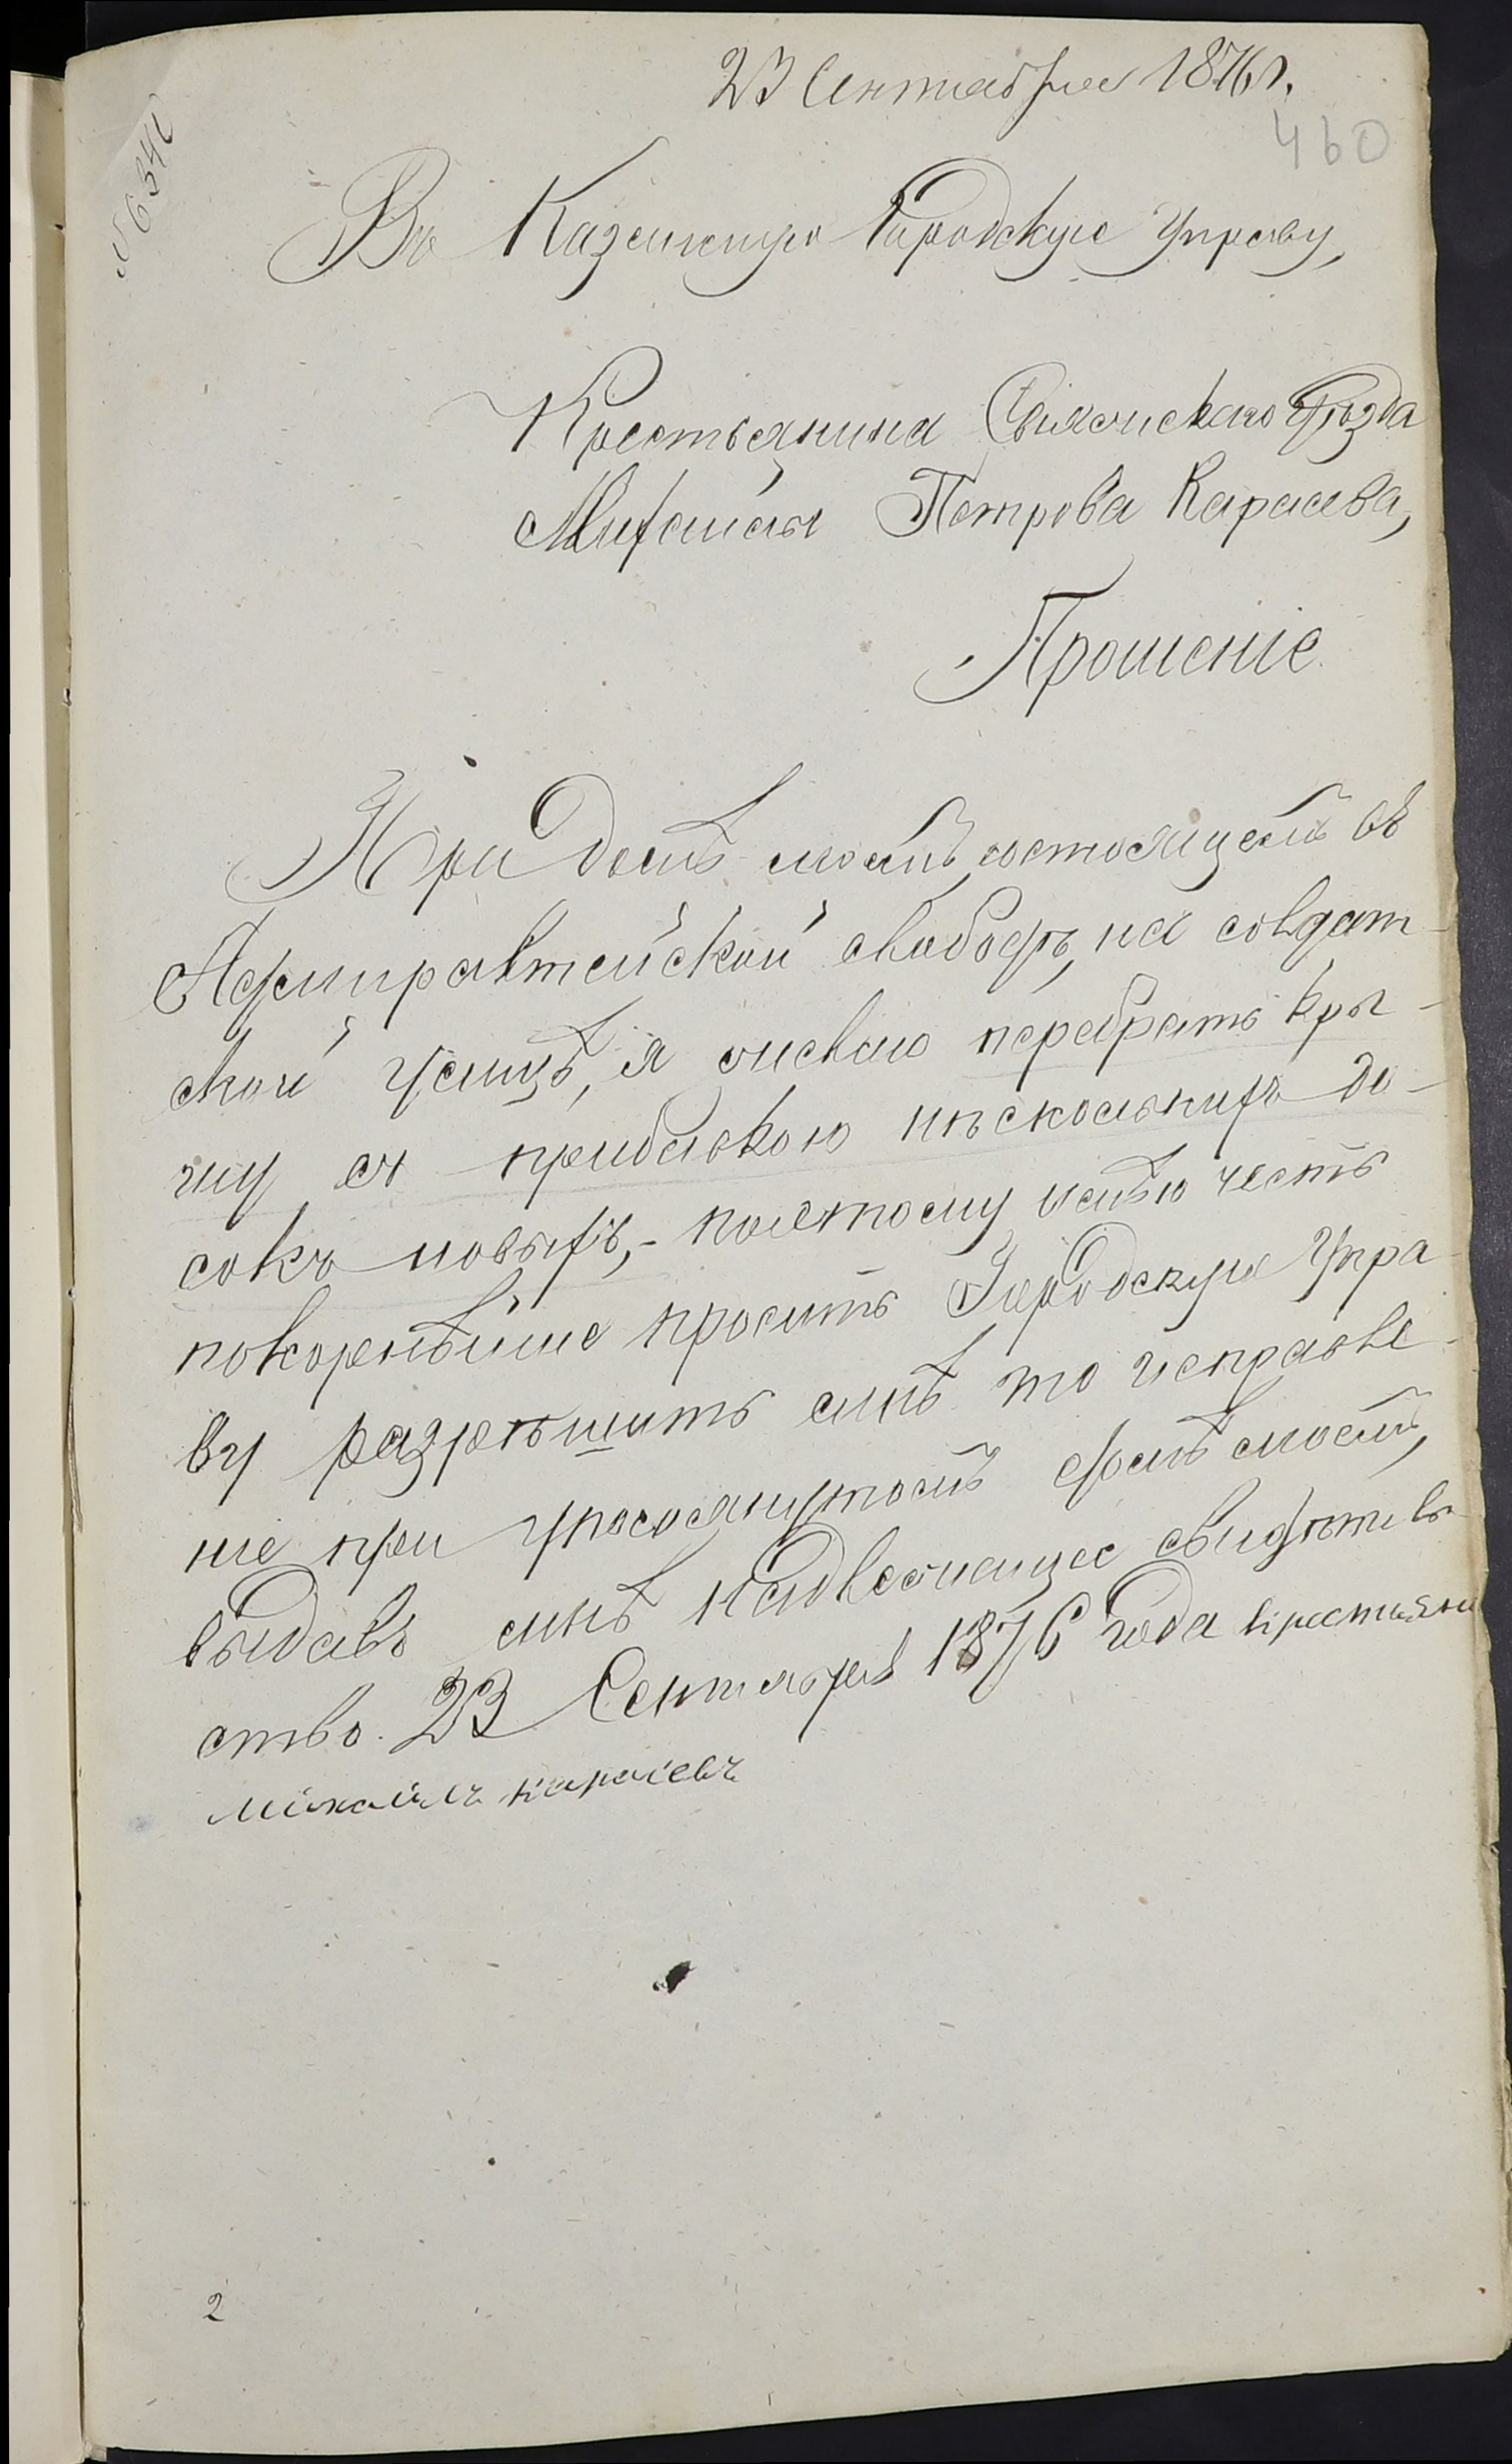 23 Сентября 1876 г.
460
№ 6340
Въ Казанскую Городскую Управу,
Крестьянина Свіяжскаго Уѣзда
Михаила Петрова Карасева,
Прошеніе.
При домѣ моемъ, состоящемъ въ
Адмиралтейской слободѣ, на солдат-
ской улицѣ, я желаю перебрать кры-
шу съ прибавкою нѣсколькихъ до-
сокъ новыхъ,- поетому имѣю честь
покорнѣйше просить Городскую Упра-
ву разрѣшить мнѣ то исправле-
ніе при упомянутомъ домѣ моемъ,
выдавъ мнѣ надлежащее свидѣтель-
ство. 23 Сентября 1876 года крестьяни
Михаилъ Карасевъ
2